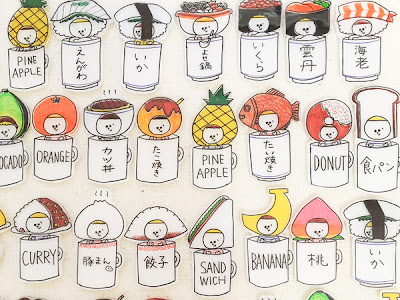 PINE
APPLE
えんがわ
いか
よせ鍋
いくら
雲丹
海老
OCADO
ORANGE
カツ丼
たこ焼き
PINE
APPLE
たい焼き
DONUT
食パン
CURRY
豚まん
餃子
SAND
WICH
BANANA
桃
いか